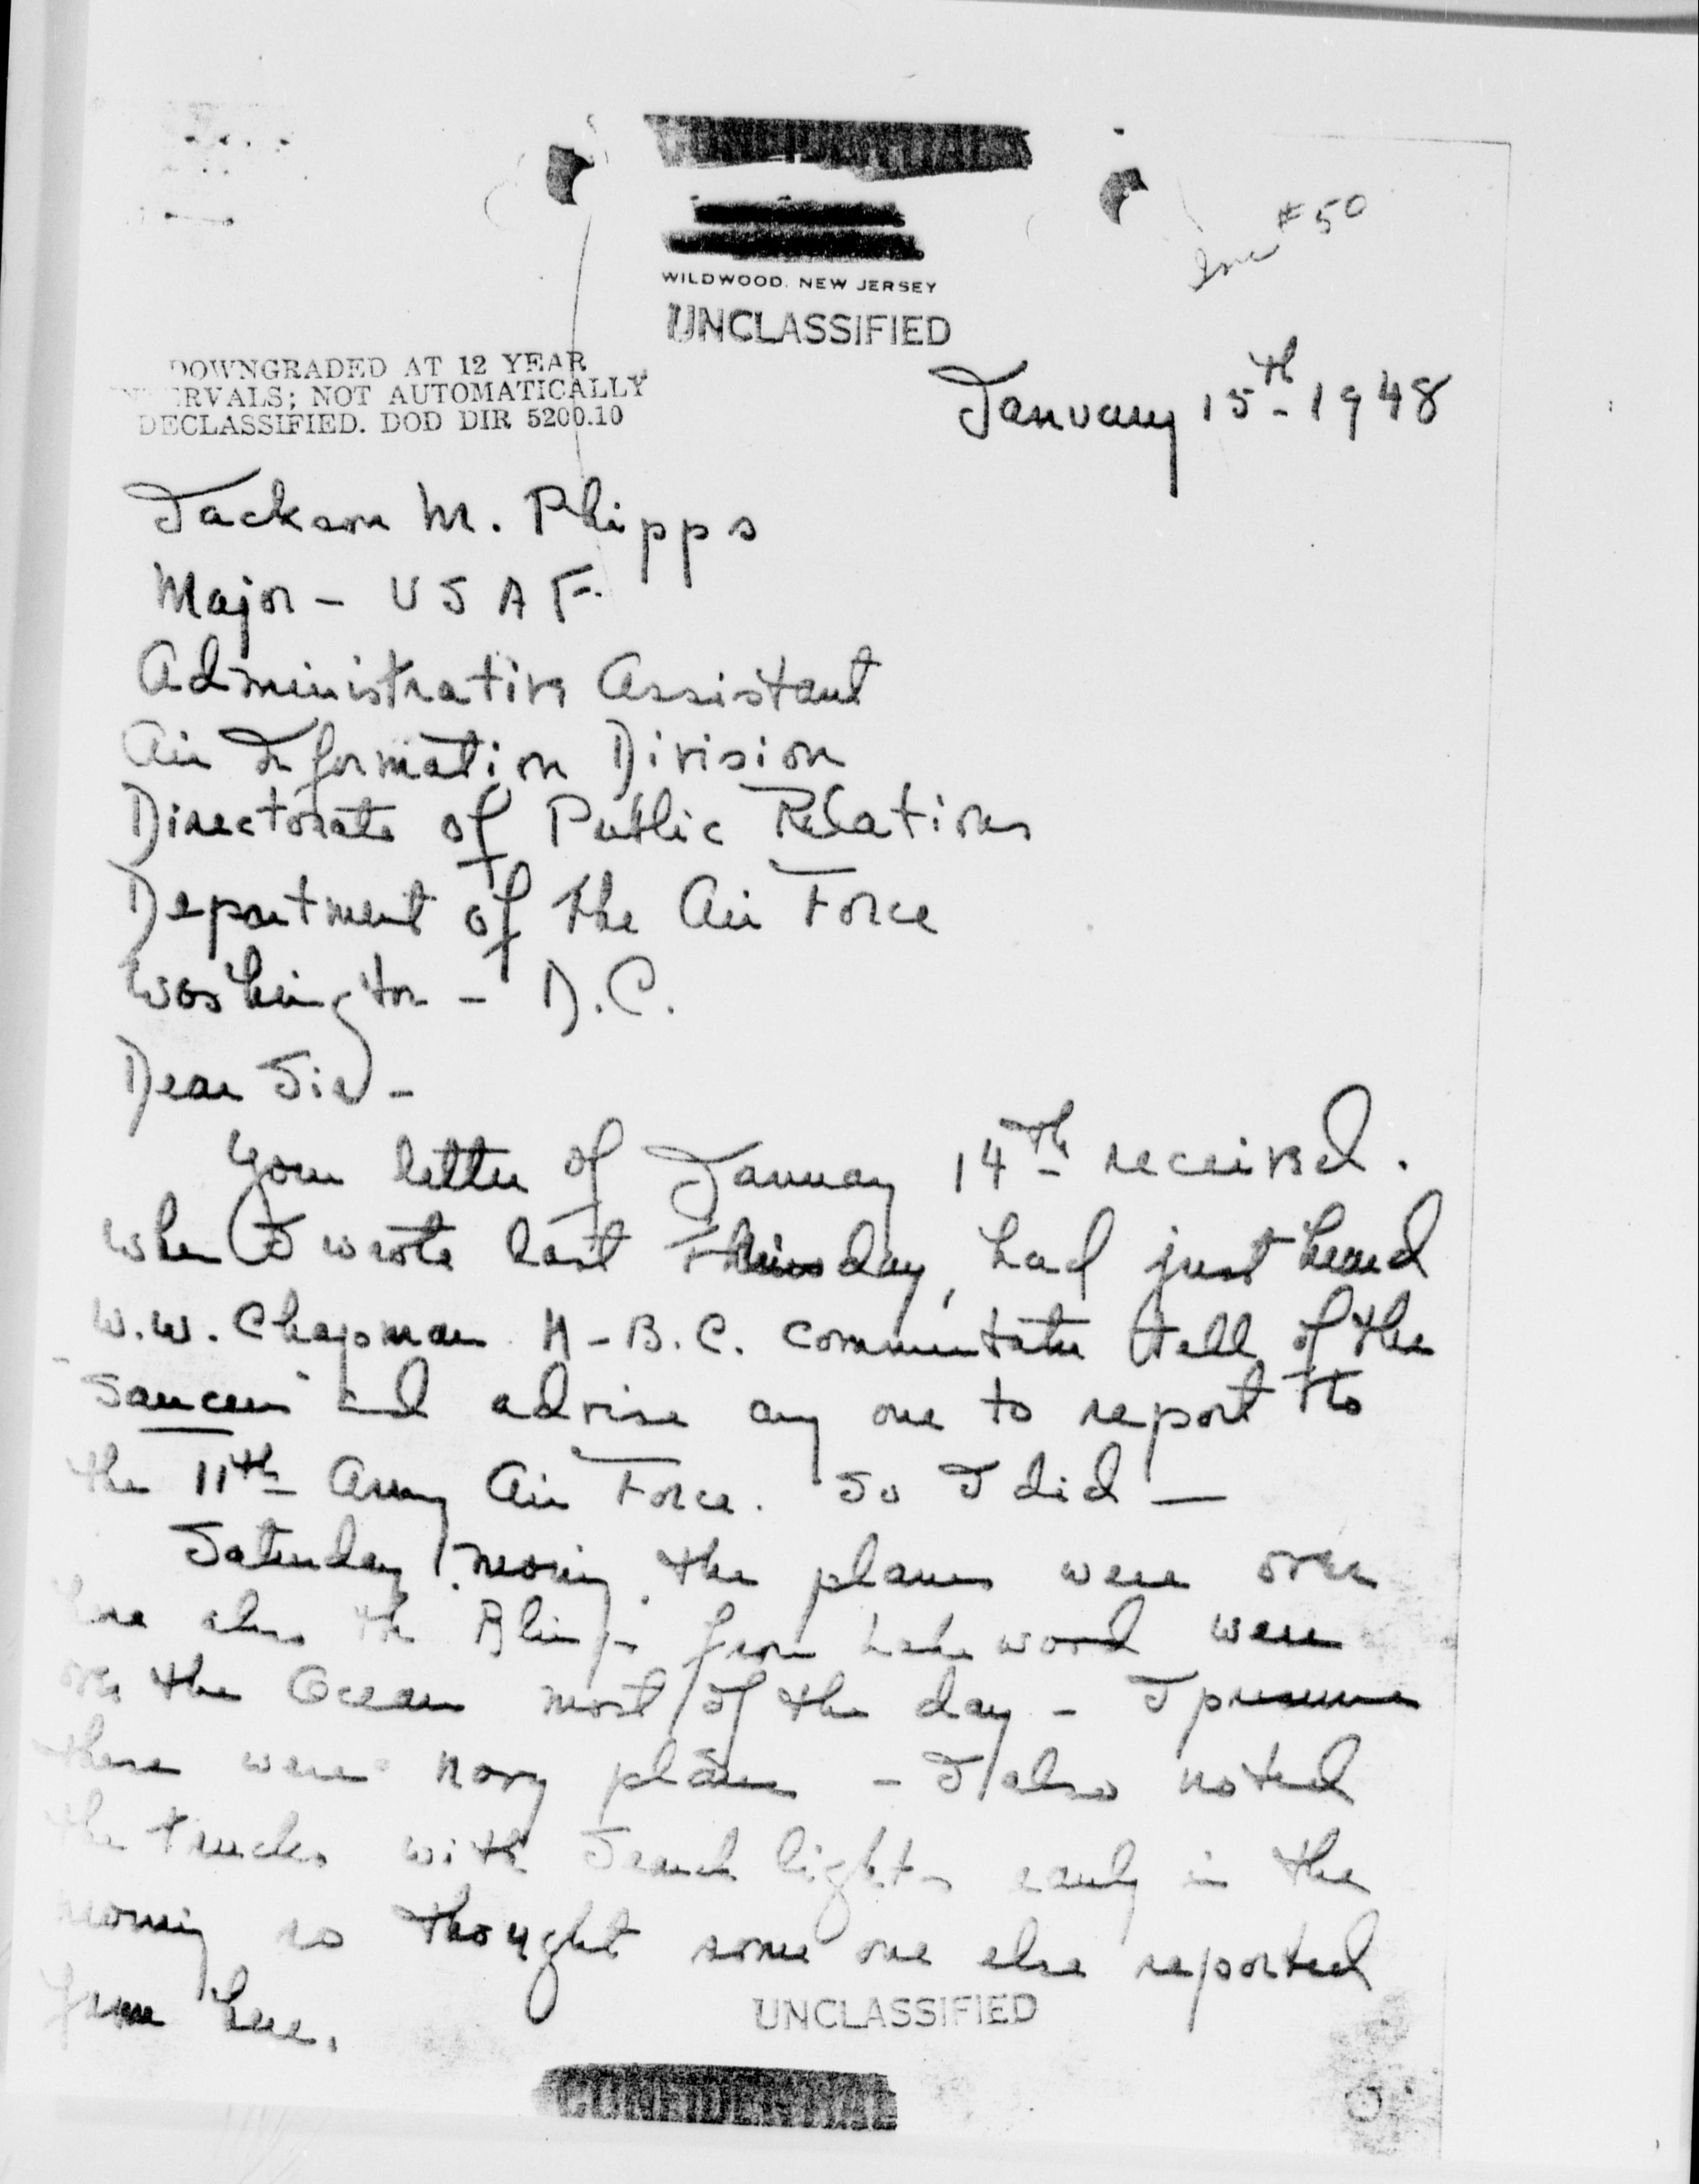 CONFIDENTIAL
#50
WILDWOOD, NEW JERSEY
UNCLASSIFIED
DOWNGRADED AT 12 YEAR
RVALS; NOT AUTOMATICALLY
DECLASSIFIED. DOD DIR 5200.10
January 15th-1948
Jackson M. Phipps
Major - USAF.
Administrative Assistant
Air Information Division
Directorate of Public Relations
Department of the Air Force
Washington - D.C.
Dear Sir -
Your letter of January 14th received.
When I wrote last Thursday, had just heard
W.W. Chapman A-B.C. Commentator tell of the
"Saucers" and advise any one to report to
the 11th Army Air Force. So I did —
Saturday morning the planes were over
here also the Blimps from Lakewood were
over the Ocean most of the day - I presume
these were navy planes - I also noted
the trucks with Search lights early in the
morning so thought some one else reported
from here.
UNCLASSIFIED
CONFIDENTIAL